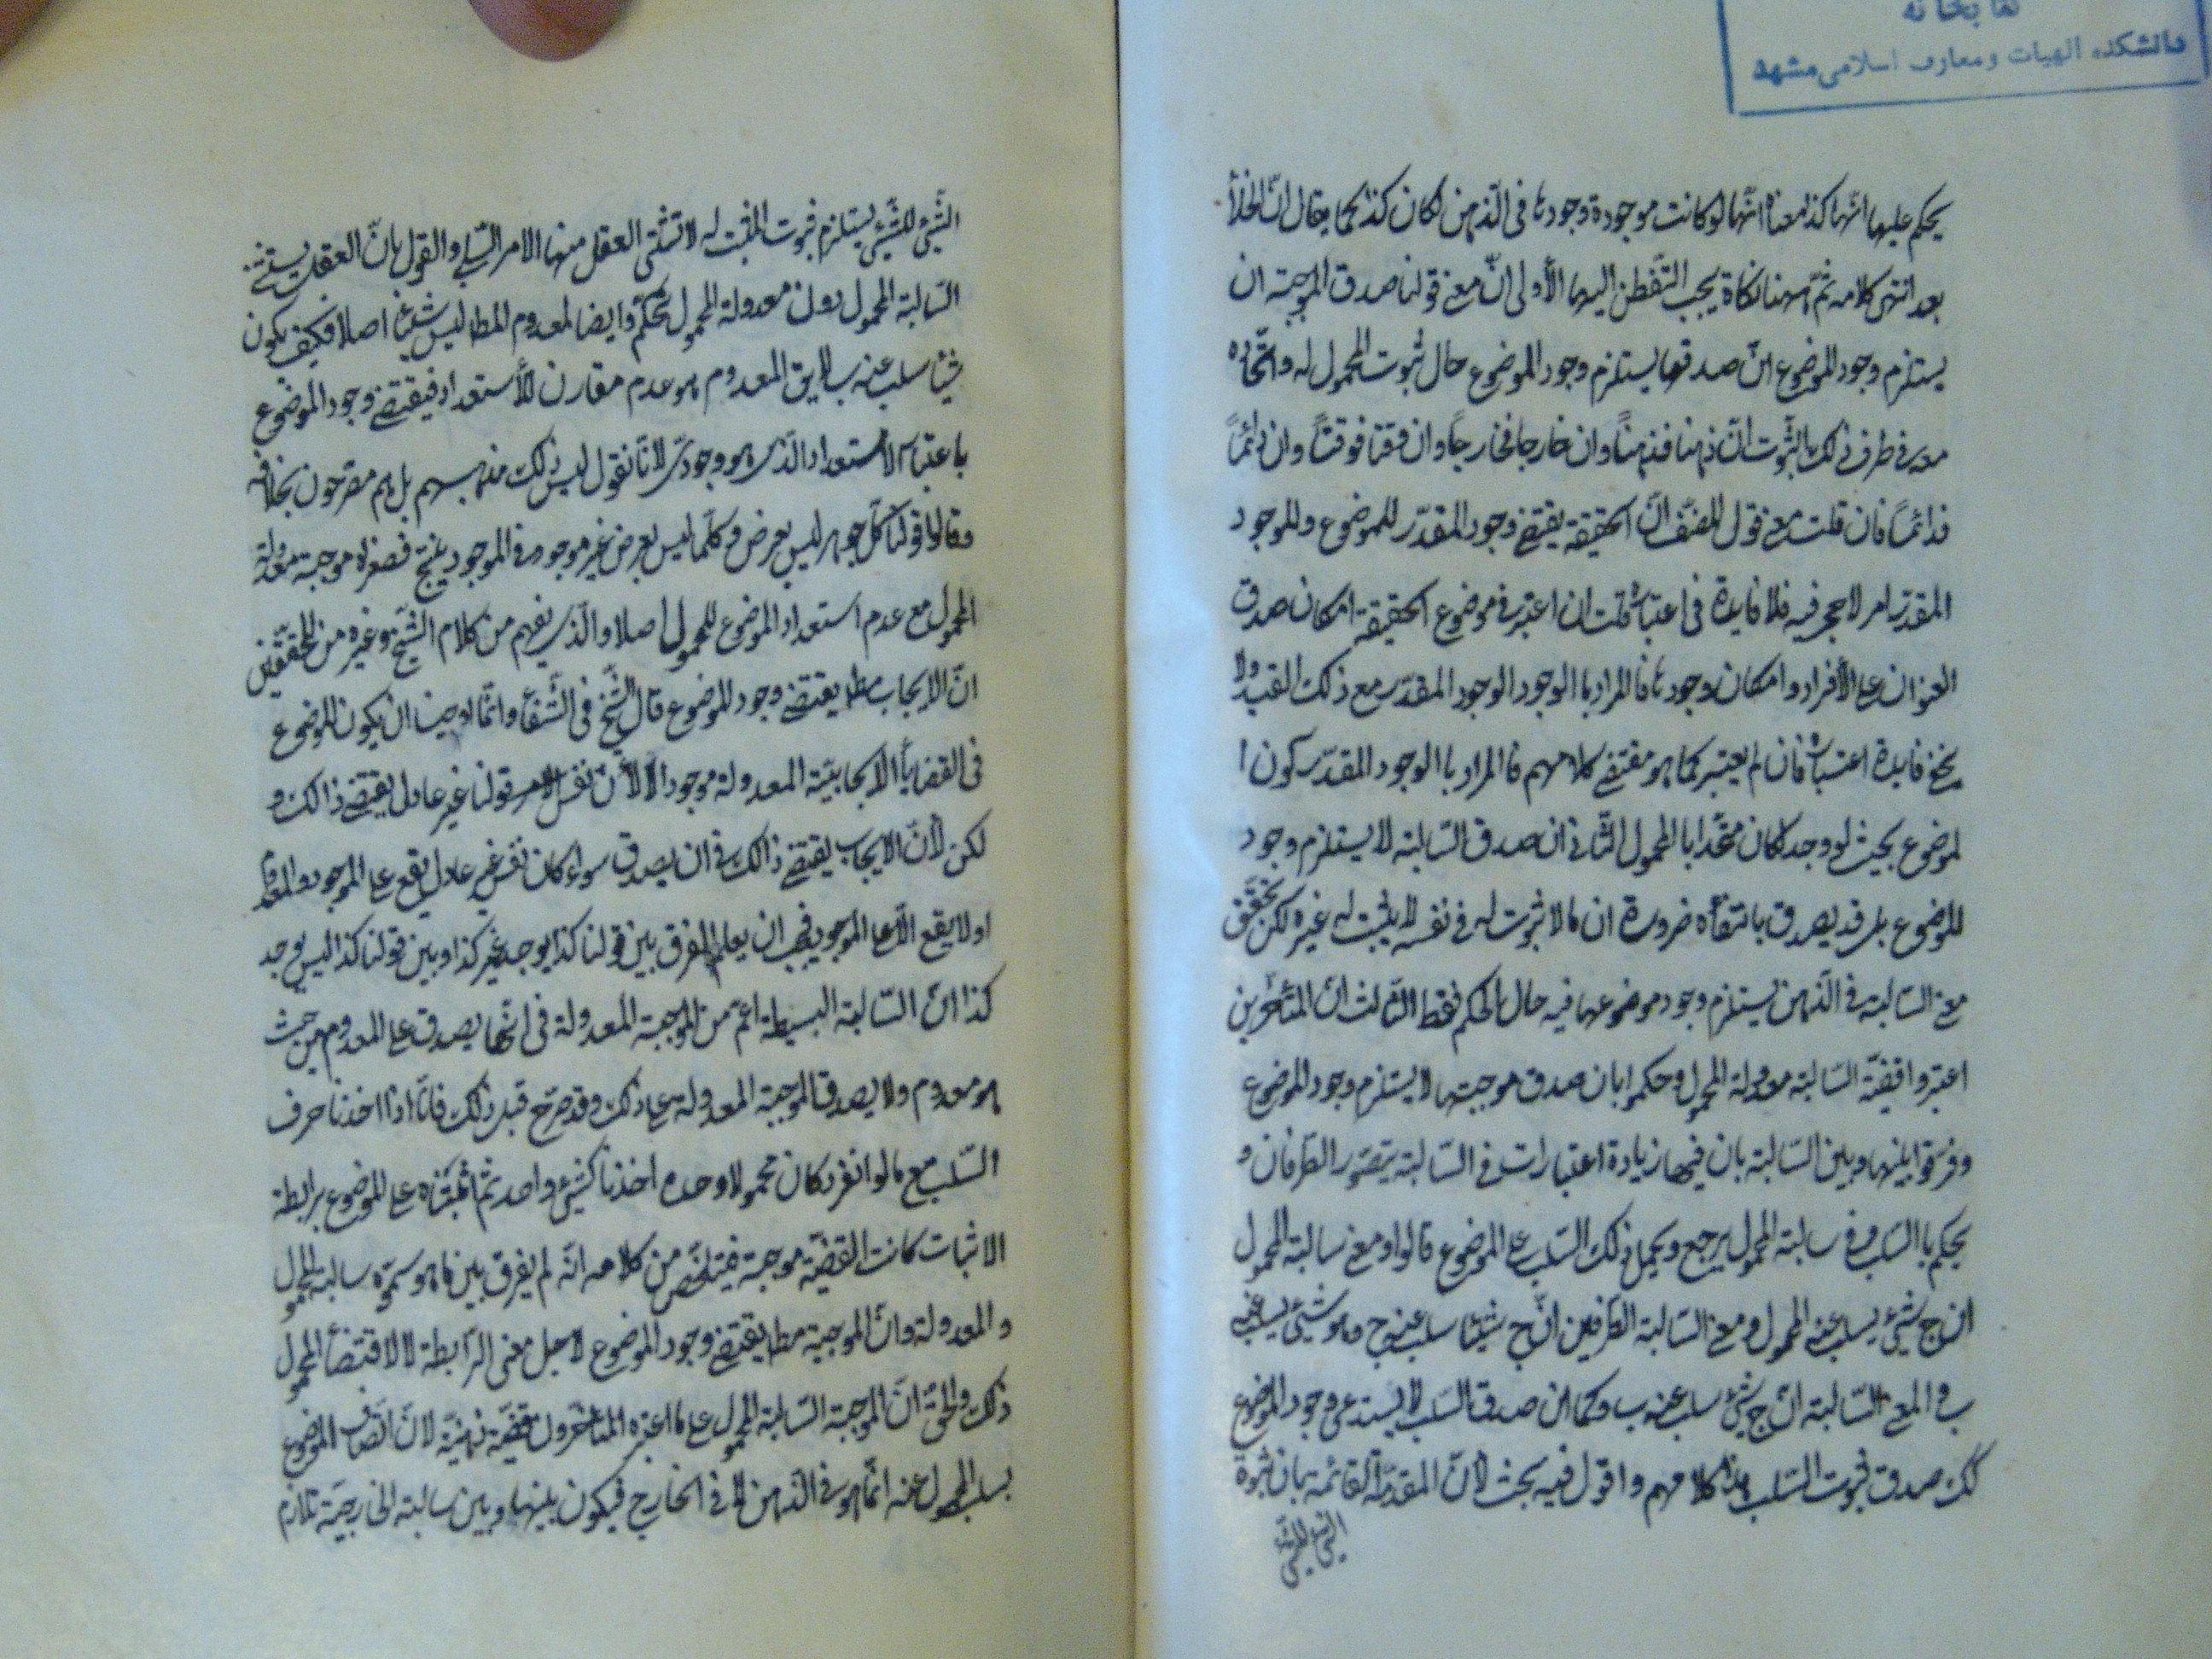 كتابخانه
دانشكده الهيات ومعارف اسلامى مشهد
يحكم عليها انّها كذا معناه انّها لو كانت موجودة وجودها فى الذّهن لكان كذا كما يقال انّ الخلأ
بعد انتهى كلامه ثمّ ههنا نكاة يجب التّفطن اليها الأولى انّ معنى قولنا صدق الموجبة ان
يستلزم وجود الموضوع انّ صدقها يستلزم وجود الموضوع حال ثبوت المحمول له واتّحاده
معه فى ظرف ذلك الثّبوت ان ذهنا فذهناً وان خارجا فخارجاً وان وقتا فوقتاً وان دائماً
فدائماً فان قلت معنى قول المصنّف انّ الحقيقة يقتضى وجود المقدّر للموضوع والموجود
المقدّر امر لا حجر فيه فلا فايدة فى اعتباره قلت ان اعتبر فى موضوع الحقيقة امكان صدق
العنوان على الأفراد وامكان وجودها فالمراد با الوجود الوجود المقدّر مع ذلك القيد ولا
يخفى فايدة اعتباره فان لم يعتبر كما هو مقتضى كلامهم فالمراد با الوجود المقدّر كون ا
لموضوع بحيث لو وجد لكان متّحدا با المحمول الثّانى ان صدق السّالبة لا يستلزم وجود
الموضوع بل قد يصدق بانتفأه ضرورة ان ما لا ثبوت له فى نفسه لا يثبت له غيره لكن تحقّق
معنى السّالبة فى الذّهن يستلزم وجود موضوعها فيه حال الحكم فقط الثّالث انّ المتأخّرين
اعتبروا قضيّة السّالبة معدولة المحمول وحكموا بان صدق موجبتها لا يستلزم وجود الموضوع
وفرّقوا بينها وبين السّالبة بان فيها زيادة اعتبارات فى السّالبة يتصوّر الطّرفان و
يحكم با السّلب وفى سالبة المحمول يرجع ويحمل ذلك السّلب على الموضوع قالوا ومعنى سالبة المحمول
ان ج شيئ يسلب عنه المحمول ومعنى السّالبة الطّرفين انّ ج شيئا سلب عنه ج وهو شيئ يسلب عنه
ب والمعنى السّالبة انّ ج شيئ سلب عنه ب وكما ان صدق السّلب لا يستدعى وجود الموضوع
كك صدق ثبوت السّلب هذا كلامهم واقول فيه بحث لأنّ المقدّمة القائمة بان ثبوت
الشّيئ للشّيئ
الشّيئ للشّيئ يستلزم ثبوت المثبت له لا تستثنى العقل منها الامر السّلبى والقول بانّ العقل يستثنى
السّالبة المحمول دون معدولة المحمول تحكّم وايضا المعدوم المطا ليس شيئا اصلا فكيف يكون
شيئا سلب عنه ب لا يق المعدوم هو عدم مقارن للأستعداد فيقتضى وجود الموضوع
باعتبار الأستعداد الّذى هو وجودى لأنّا نقول ليس ذلك مذهبهم بل هم مصرّحون بخلافه
وقالوا قولنا كلّ جوهر ليس بعرض وكلّما ليس بعرض غير موجود فى الموجود ينتج فصغراه موجبة معدولة
المحمول مع عدم استعداد الموضوع للمحمول اصلا والّذى يفهم من كلام الشّيخ وغيره من المحقّقين
انّ الايجاب مطا يقتضى وجود الموضوع قال الشّيخ فى الشّفأ وانّما اوجبنا ان يكون الموضوع
فى القضايأ الايجابيّة المعدولة موجودا لا لأنّ نفس الأمر قولنا غير عادل يقتضى ذالك و
لكن لأنّ الايجاب يقتضى ذالك فى ان يصدق سواء كان نفس غير عادل يقع على الموجود والمعدوم
او لا يقع الّا على الموجود فيجب ان يعلم الفرق بين قولنا كذا يوجد غير كذا وبين قولنا كذا ليس يوجد
كذا انّ السّالبة البسيطة اعمّ من الموجبة المعدولة فى انّها يصدق على المعدوم من حيث
هو معدوم ولا يصدق الموجبة المعدولة على ذلك وقد صرّح قبل ذلك فانّا اذا اخذنا حرف
السّلب مع ما لو انفرد كان محمولا وحده اخذنا كشيئ واحد ثمّ اثبتناه على الموضوع برابطة
الاثبات كانت القضيّة موجبة فيتلخّص من كلامه انّه لم يفرق بين ما هو سمّوه سالبة المحمول
والمعدولة وانّ الموجبة مطا يقتضى وجود الموضوع لاجل معنى الرّابطة لا لاقتضأ المحمول
ذلك والحقّ انّ الموجبة السّالبة المحمول على ما اعتبره المتأخّرون قضيّة ذهنيّة لانّ اتّصاف الموضوع
بسلب المحمول عنه انّما هو فى الذّهن لا فى الخارج فيكون بينها وبين سالبة الخارجيّة تلازم